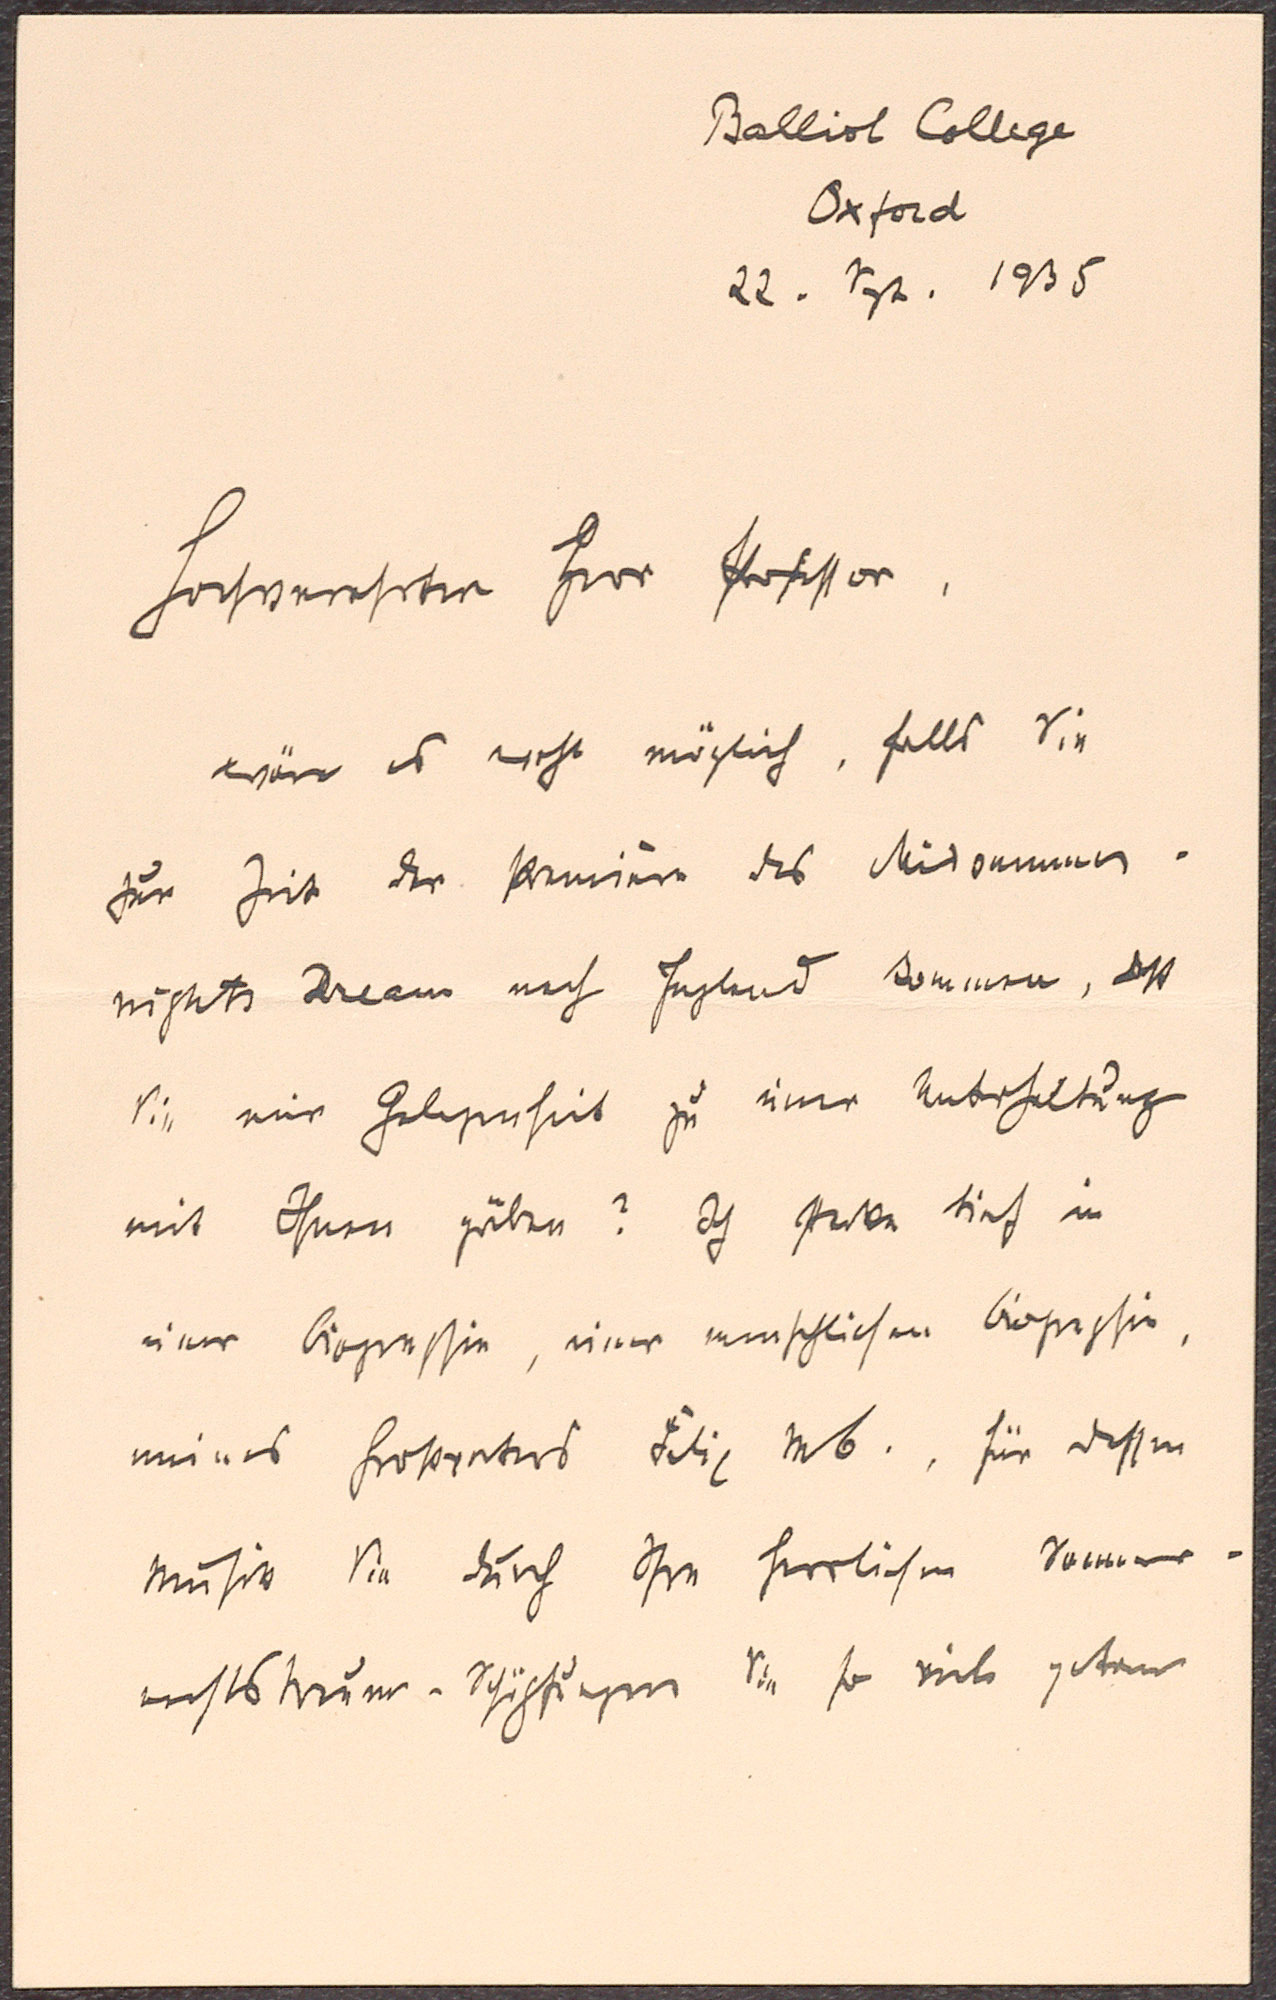 Balliol College
Oxford
22. Spt. 1935
Hochverehrter Herr Professor,
wäre es nicht möglich, falls Sie
zur Zeit der Première des Midsummer-
nights Dream nach England kommen, dass
Sie mir Gelegenheit zu einer Unterhaltung
mit Ihnen gäben? Ich stecke tief in
einer Biographie, einer menschlichen Biographie,
meines Grossvaters Felix MB., für dessen
Musik Sie durch Ihre herrlichen Sommer-
nachtstraum-Schöpfungen Sie so viel getan